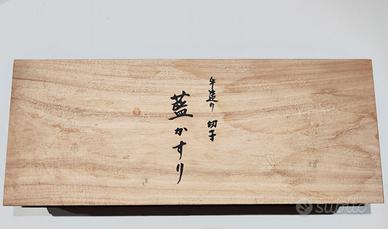 手造り 切子
藍かすり
subito